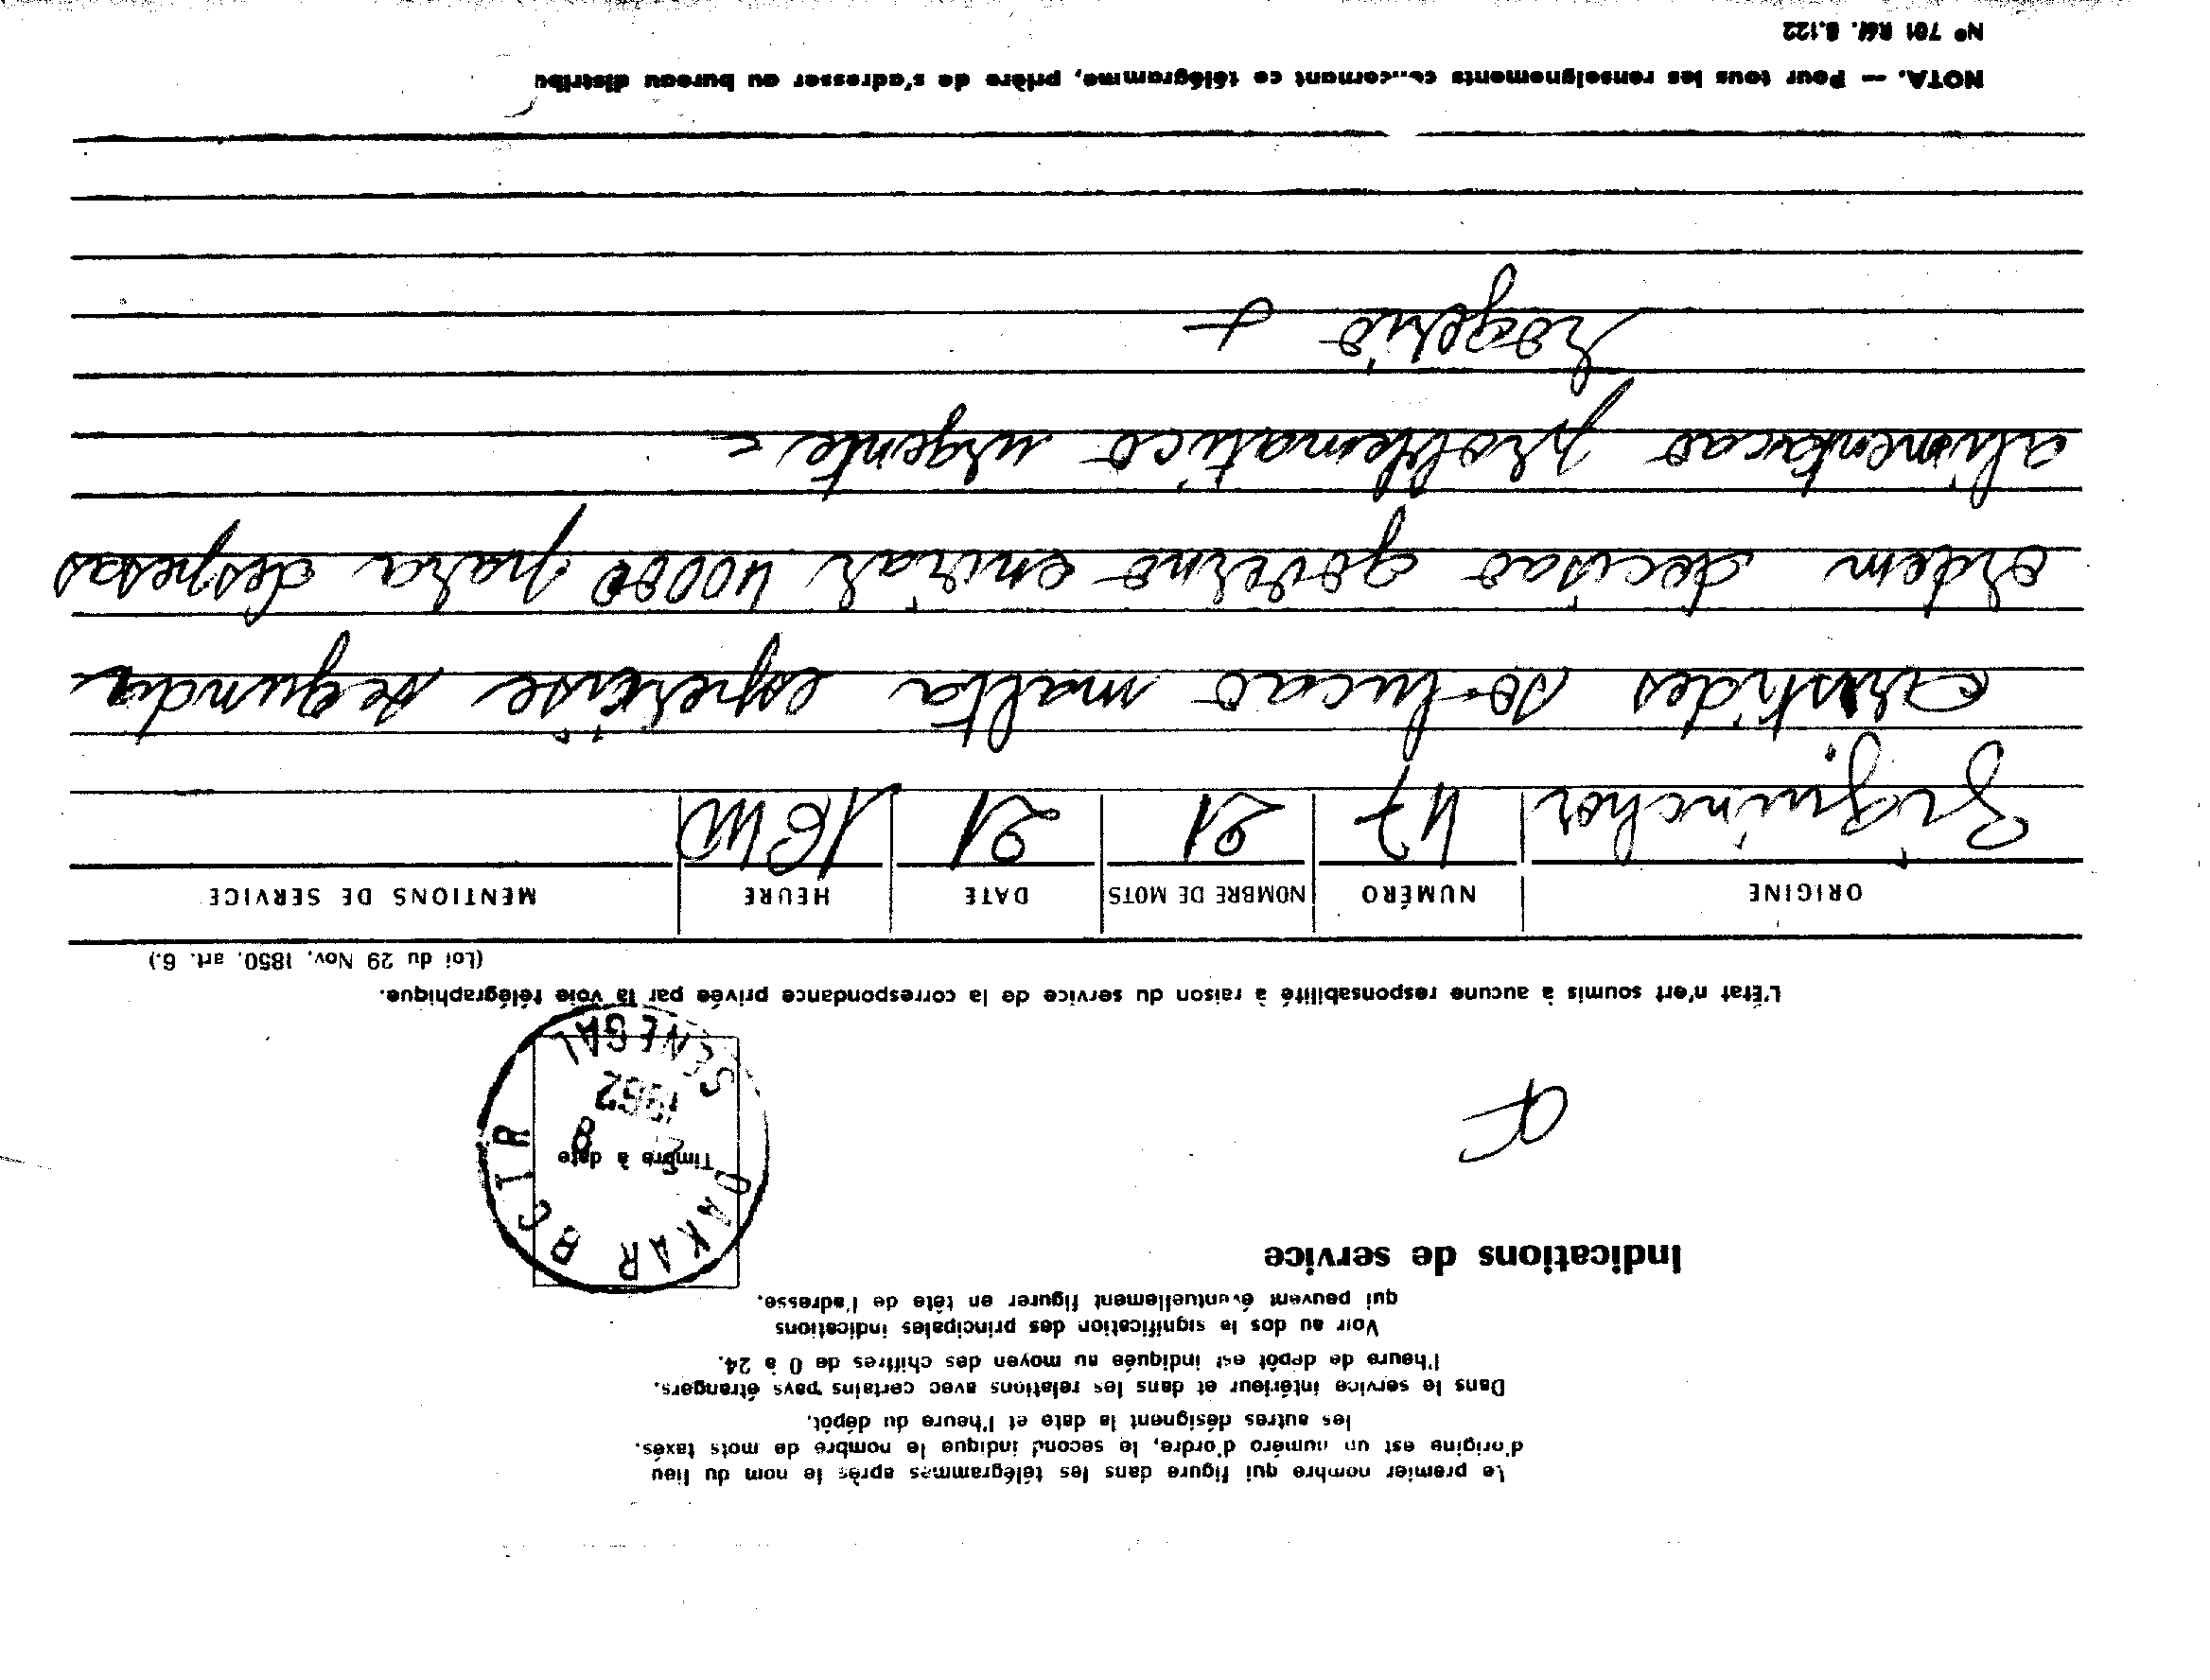 Le premier nombre qui figure dans les télégrammes après le nom du lieu
d'origine est un numéro d'ordre, le second indique le nombre de mots taxés.
les autres désignent la date et l'heure du dépôt.
Dans le service intérieur et dans les relations avec certains pays étrangers,
l'heure de depôt est indiquée au moyen des chiffres de 0 à 24.
Voir au dos la signification des principales indications
qui peuvent éventuellement figurer en tête de l'adresse.
Indications de service
Timbre à date
DAKAR BCTR
8
1962
SENEGAL
L'État n'ert soumis à aucune responsabilité à raison du service de la correspondance privée par la voie télégraphique.
(Loi du 29 Nov. 1850. art. 6.)
ORIGINE NUMÉRO NOMBRE DE MOTS DATE HEURE MENTIONS DE SERVICE
Ziguinchor 47 21 21 1640
Aristides so-lucao malta espere-se segunda
ordem decisao governo enviar 40000 para despesas
alimentacao problematica urgente =
Rogerio +
NOTA. — Pour tous les renseignements concernant ce télégramme, prière de s'adresser au bureau distribu
N° 701 Réf. 8.122